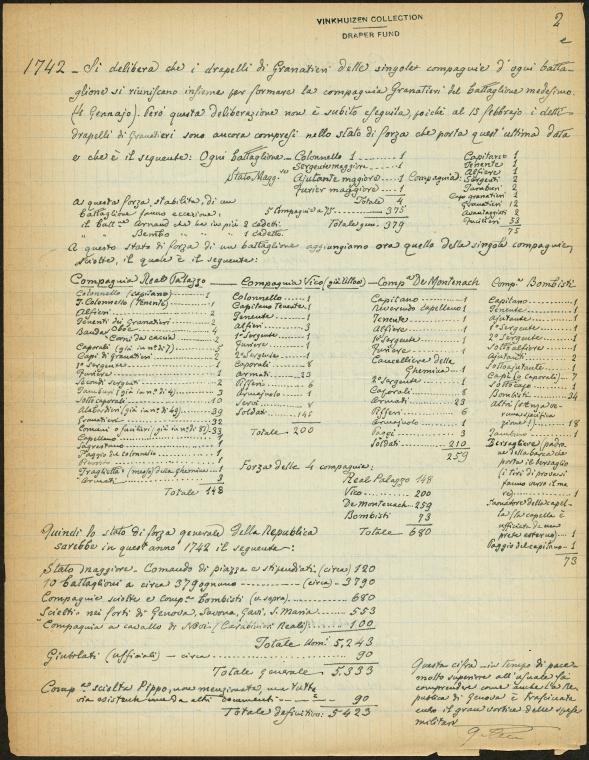 VINKHUIZEN COLLECTION
DRAPER FUND
2
1742 - Si delibera che i drapelli di Granatieri delle singole compagnie d'ogni batta-
glione si riuniscano insieme per formare la compagnia Granatieri del battaglione medesimo.
(4 Gennajo). Però questa deliberazione non è subito eseguita, poichè al 13 febbrajo i detti
drapelli di Granatieri sono ancora compresi nello stato di forza che porta quest'ultima data
e che è il seguente: Ogni battaglione -
Stato Magg.
Colonnello 1 - 1
Sergente maggiore - 1
Ajutante maggiore - 1
Furier maggiore - 1
Totale 4
5 Compagnie a 75 - 375
Totale gen. 379
Compagnia:
Capitano 1
Tenente 1
Alfiere 1
Sergenti 2
Tamburi 2
Capo granatieri 1
Granatieri 12
Avantaggiati 2
Fucilieri 53
75
a questa forza, stabilita, di un
battaglione fanno eccezione:
il batt. Arnaud che ha in più 2 cadetti.
" " Bembo " " " 1 cadetto.
A questo stato di forza di un battaglione aggiungiamo ora quello delle singole compagnie
sciolte, il quale è il seguente:
Compagnia Real Palazzo
Colonnello (capitano) 1
T. Colonnello (Tenente) 1
Alfieri 2
Tenenti dei Granatieri 2
Banda: Oboe 4
" Corni da caccia 2
Caporali (già in n° di 7)
Capi di Granatieri 2
1° Sergente 1
Furiere 1
Secondi sergenti 2
Tamburi (già in n° di 4) 3
Sotto caporali 10
Alabardieri (già in n° di 49) 39
Granatieri 32
Comuni o fucilieri (già in n° di 83) 33
Cappellano 1
Sagrestano 1
Paggio del colonnello 1
1
Fraglietta (messo) della Ghermina 1
Armati 3
Totale 148
Compagnia Vico (già Ultoo)
Colonnello 1
Capitano Tenente 1
Tenente 1
Alfieri 3
1° Sergente 1
Furiere 1
2° Sergente 1
Caporali 8
Armati 23
Pifferi 6
Armajuolo 1
Servi 8
Soldati 145
Totale 200
Comp.a De Montenach
Capitano 1
Reverendo capellano 1
Tenente 1
Alfiere 1
1° Sergente 1
Furiere 1
Cancelliere della
Ghermina 1
2° Sergente 1
Caporali 8
Armati 23
Pifferi 6
Armajuolo 1
Paggi 3
Soldati 210
259
Comp.a Bombisti
Capitano 1
Tenente 1
Ajutante 1
1° Sergente 1
2° Sergente 1
Sottoalfiere 1
Ajutanti 2
Sottoajutante 1
Capi (o caporali) 7
Sottocapo 1
Bombisti 34
Altri (senza ve-
runa specifica-
zione!) 18
Tamburino 1
Bersagliere (padro-
ne della barca che
porta il bersaglio
(i tiri di prova si
fanno verso il ma-
re) 1
Servitore della capel-
la (la capella è
ufficiata da un
prete esterno) 1
Paggio del capitano 1
73
Forza delle 4 compagnie:
Real Palazzo 148
Vico 200
De Montenach 259
Bombisti 73
Totale 680
Quindi lo stato di forza generale della Repubblica
sarebbe in quest'anno 1742 il seguente:
Stato maggiore. Comando di piazza e stipendiati (circa) 120
10 Battaglioni a circa 379 ognuno (circa) 3790
Compagnie sciolte e comp.a Bombisti (v. sopra) 680
Scielti nei forti di Genova, Savona, Gavi, S. Maria 553
Compagnia a cavallo di Novi (Carabinieri Reali) 100
Totale uom. 5,243
Giubilati (ufficiali) - circa 90
Totale generale 5.333
Comp.a sciolta Pippo, non menzionata, ma tutta
via esistente ma da altri documenti 90
Totale definitivo: 5423
Questa cifra - in tempo di pace
molto superiore all'usuale fa
comprendere come anche la Re
pubblica di Genova è trascinata
entro il gran vortice delle spese
militari